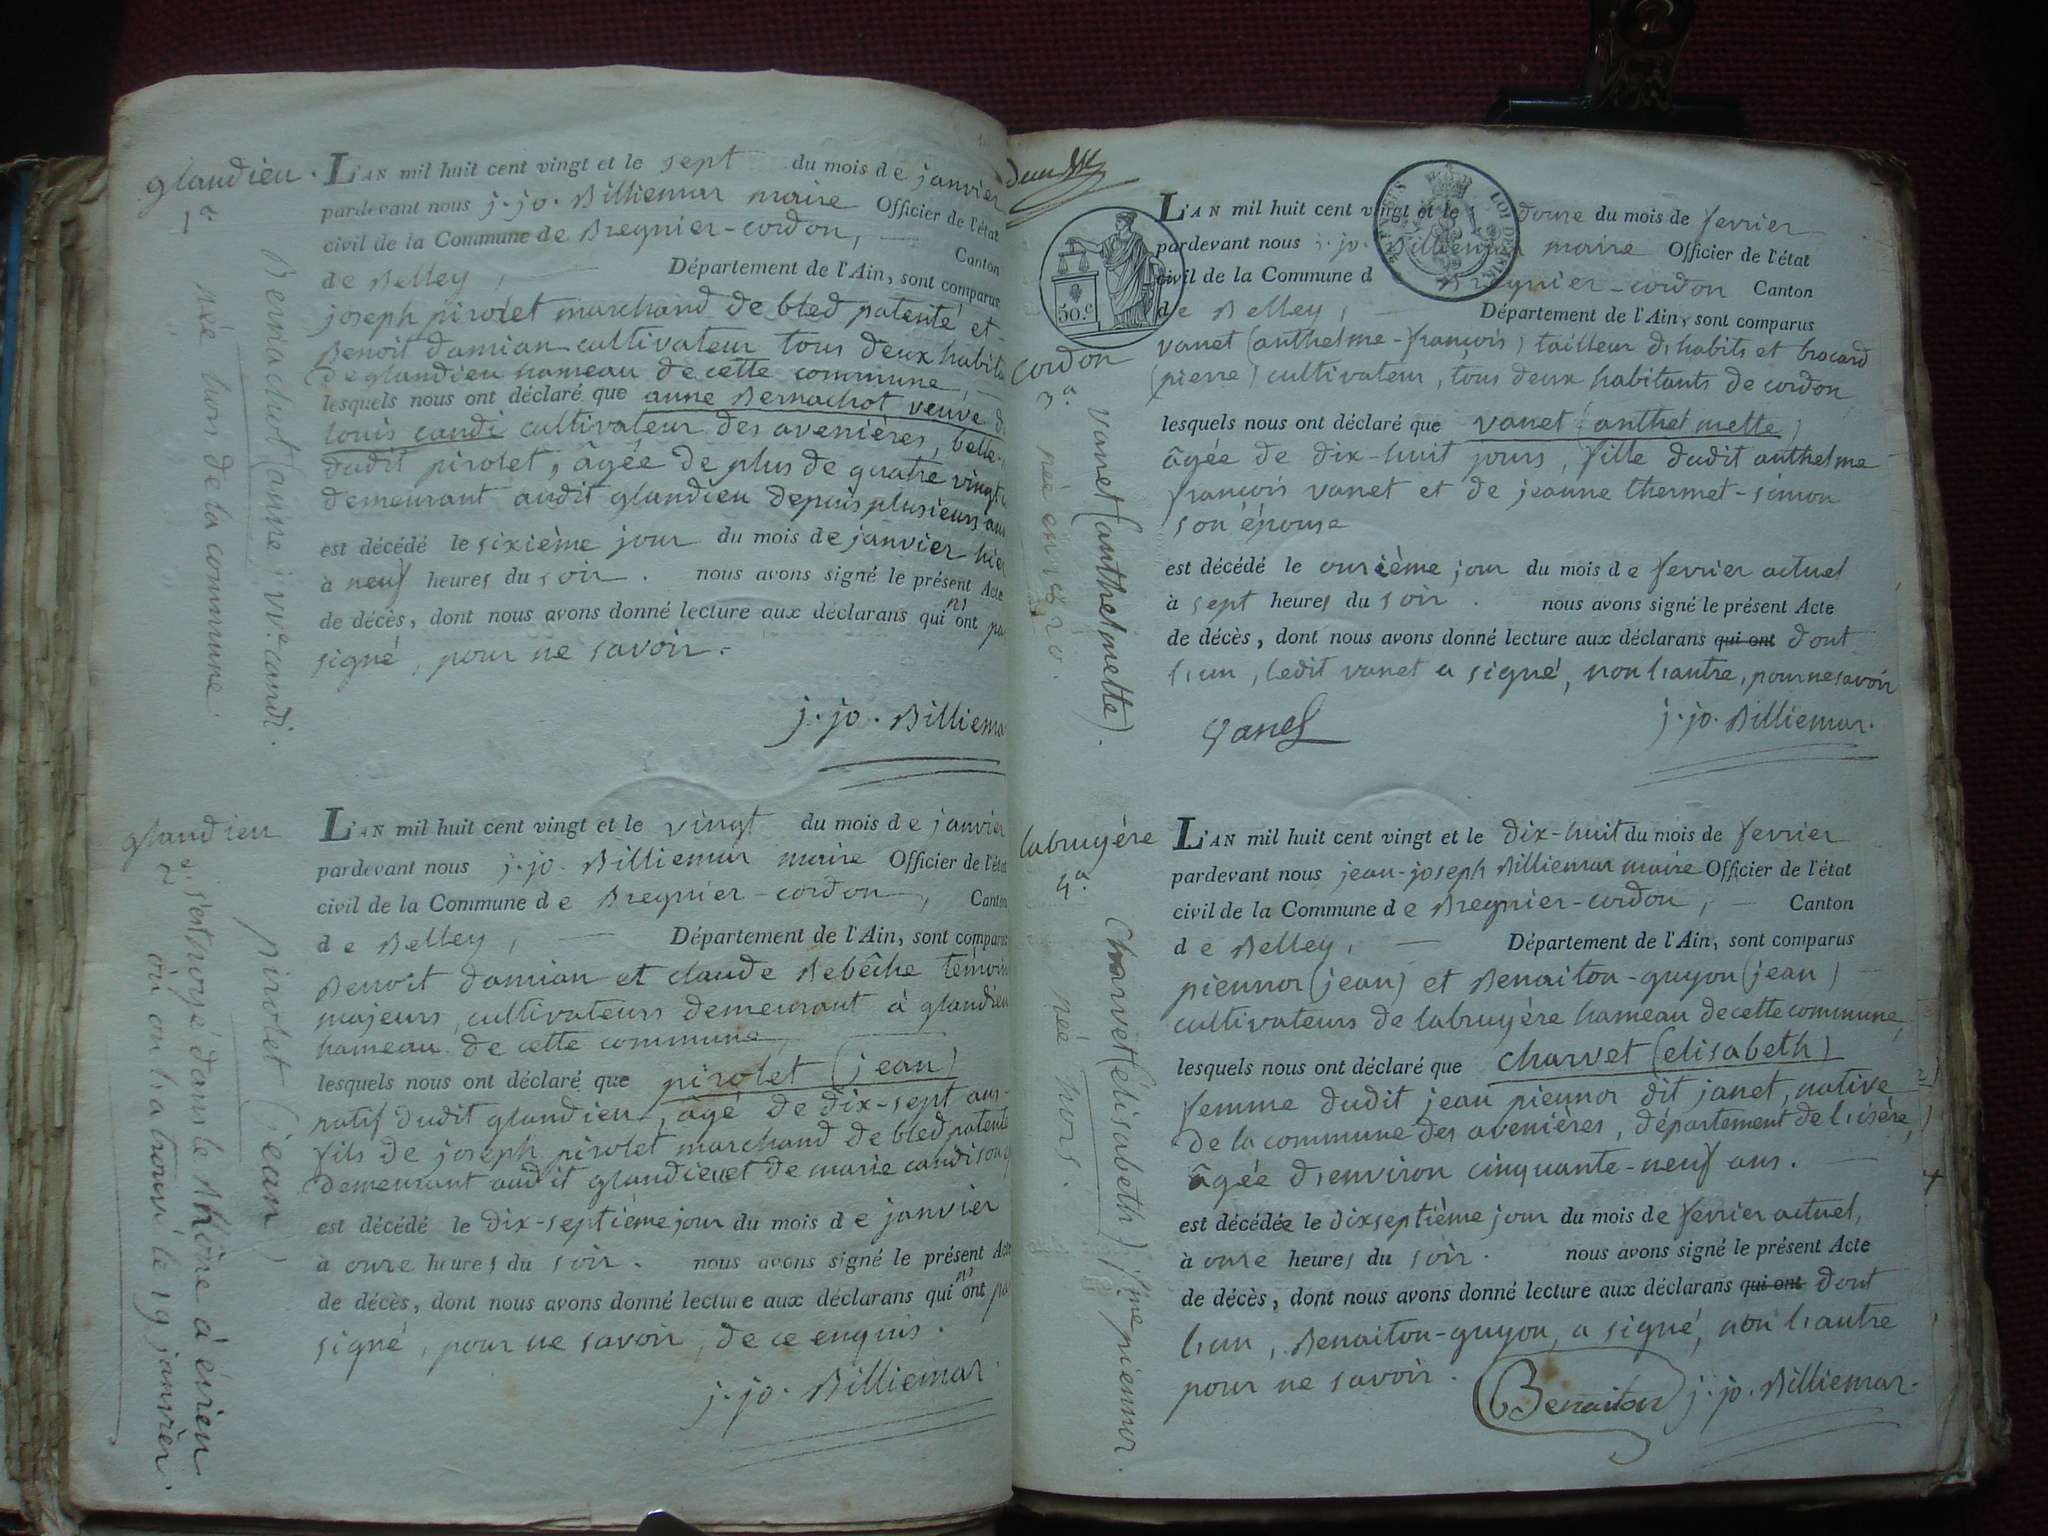 glandieu.
1.er
Bernachot (anne) v.e candi.
née hors de la commune
L'AN mil huit cent vingt et le sept du mois de janvier
pardevant nous j. jo. Billiemar maire Officier de l'état
civil de la Commune de Bregnier-cordon, Canton
de Belley, Département de l'Ain, sont comparus
joseph pirolet marchand de bled patenté et
Benoit damian cultivateur tous deux habita
de glandieu hameau de cette commune,
lesquels nous ont déclaré que anne Bernachot veuve de
louis candi cultivateur des avenières, belle-
dudit pirolet, âgée de plus de quatre vingt
demeurant audit glandieu depuis plusieurs ans
est décédé le sixième jour du mois de janvier hier
à neuf heures du soir. nous avons signé le présent Acte
de décès, dont nous avons donné lecture aux déclarans qui n'ont pas
signé, pour ne savoir.
j. jo. Billiemar
glandieu
2.
pirolet (jean)
s'est noyé dans le Rhône à évieu
où on l'a trouvé le 19 janvier.
L'AN mil huit cent vingt et le vingt du mois de janvier
pardevant nous j. jo. Billiemar maire Officier de l'état
civil de la Commune de Bregnier-cordon, Canton
de Belley, Département de l'Ain, sont comparus
Benoit damian et claude Rebêche témoins
majeurs, cultivateurs demeurant à glandieu
hameau de cette commune,
lesquels nous ont déclaré que pirolet (jean)
natif dudit glandieu, âgé de dix-sept ans
fils de joseph pirolet marchand de bled patenté
demeurant audit glandieu et de marie candi son
est décédé le dix-septième jour du mois de janvier
à onze heures du soir. nous avons signé le présent Acte
de décès, dont nous avons donné lecture aux déclarans qui n'ont pas
signé, pour ne savoir, de ce enquis.
j. jo. Billiemar
50.c
cordon
3.a
vanet (anthelmette).
née en 1820.
L'AN mil huit cent vingt et le douze du mois de fevrier
pardevant nous j. jo. Billiemar maire Officier de l'état
civil de la Commune d Bregnier-cordon Canton
de Belley, Département de l'Ain, sont comparus
vanet (anthelme-françois) tailleur d'habits et brocard
(pierre) cultivateur, tous deux habitants de cordon
lesquels nous ont déclaré que vanet (anthelmette)
âgée de dix-huit jours, fille dudit anthelme
françois vanet et de jeanne thermet-simon
son épouse
est décédé le onzième jour du mois de fevrier actuel
à sept heures du soir. nous avons signé le présent Acte
de décès, dont nous avons donné lecture aux déclarans qui ont dont
l'un, ledit vanet a signé, non l'autre, pour ne savoir
Vanet j. jo. Billiemar.
labruyère
4.a
Charvet (élisabeth) f.me piennor.
née hors.
L'AN mil huit cent vingt et le dix-huit du mois de fevrier
pardevant nous jean-joseph Billiemar maire Officier de l'état
civil de la Commune de Bregnier-cordon, Canton
de Belley, Département de l'Ain, sont comparus
piennor (jean) et Benaiton-guyon (jean)
cultivateurs de labruyère hameau de cette commune,
lesquels nous ont déclaré que charvet (elisabeth)
femme dudit jean piennor dit janet, native
de la commune des avenières, département de l'isère,
âgée d'environ cinquante-neuf ans.
est décédée le dixseptième jour du mois de fevrier actuel,
à onze heures du soir. nous avons signé le présent Acte
de décès, dont nous avons donné lecture aux déclarans qui ont dont
l'un, Benaiton-guyon, a signé, non l'autre
pour ne savoir.
Benaiton j. jo. Billiemar.